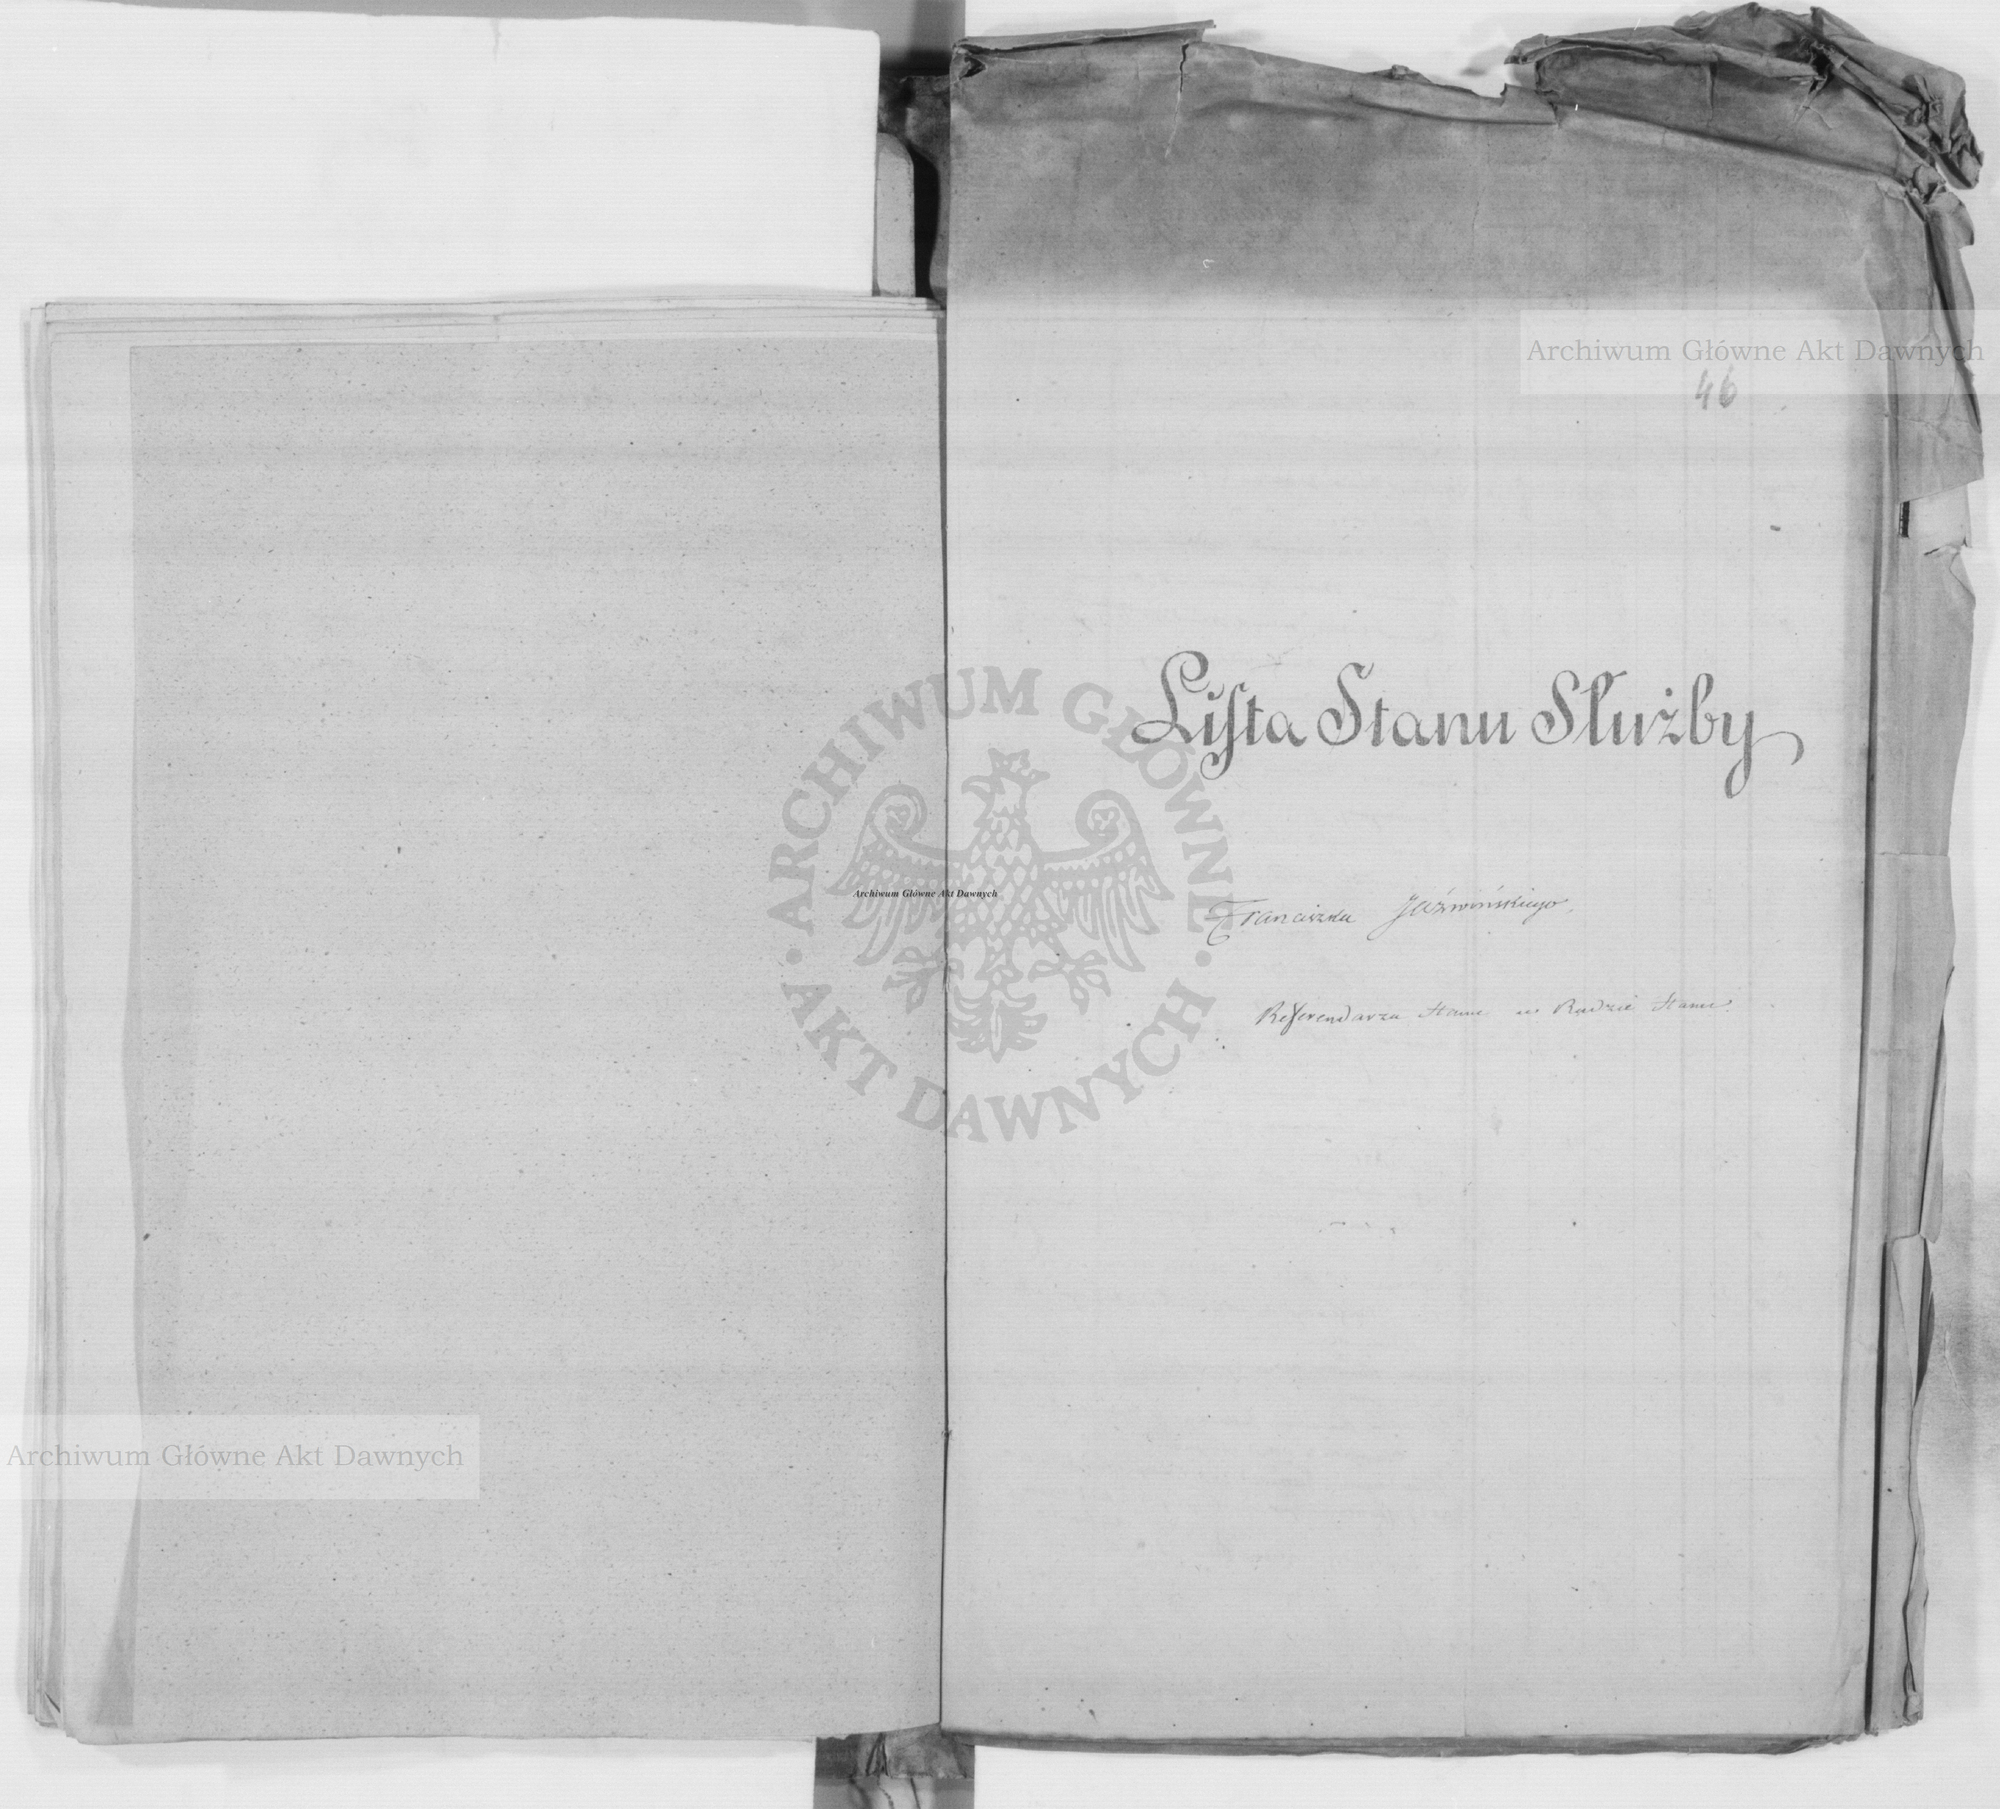 Archiwum Główne Akt Dawnych
46
Lista Stanu Służby
ARCHIWUM GŁÓWNE AKT DAWNYCH
Archiwum Główne Akt Dawnych
Franciszka Jaźwińskiego,
Referendarza Stanu w Radzie Stanu.
Archiwum Główne Akt Dawnych